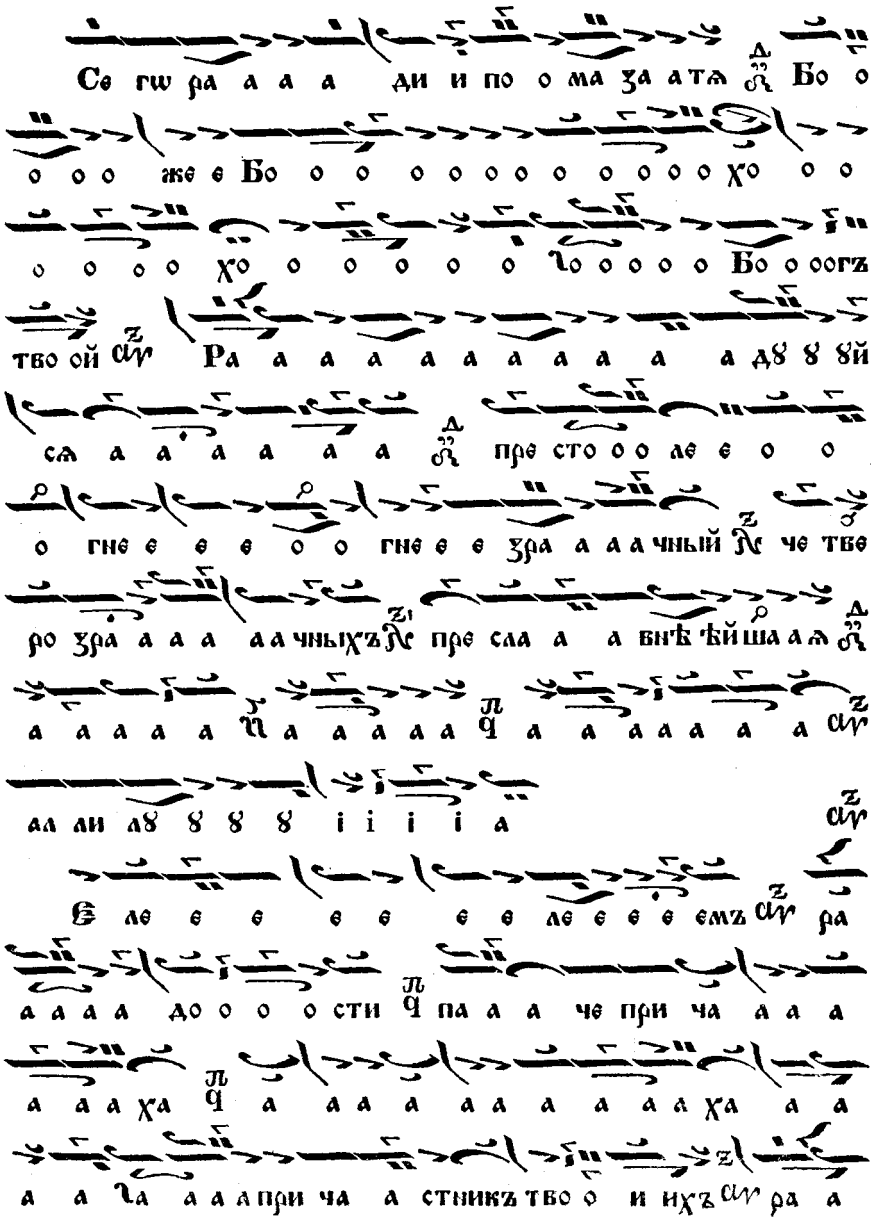 Се гѡ ра а а а ди и по о ма ꙁа а тѧ Бо о
о о о же е Бо о о о о о о о о о о о хо о о о
о о о о хо о о о о о о го о о о о Бо о оогъ
тво ой Ра а а а а а а а а а а дꙋ ꙋ ꙋй
сѧ а а а а а а пре сто о о ле е о о
о гне е е е о о гне е е ꙁра а а а чный че тве
ро ꙁра а а а а а чныхъ пре сла а а внѣ ѣй ша а ѧ
а а а а а а а а а а а а а а а а а
ал ли лꙋ ꙋ ꙋ ꙋ і і і і а
Є ле е е е е е е ле е е е емъ ра
а а а а до о о о сти па а а че при ча а а а
а а а ха а а а а а а а а а ха а а
а а га а а а при ча а стникъ тво о и ихъ ра а